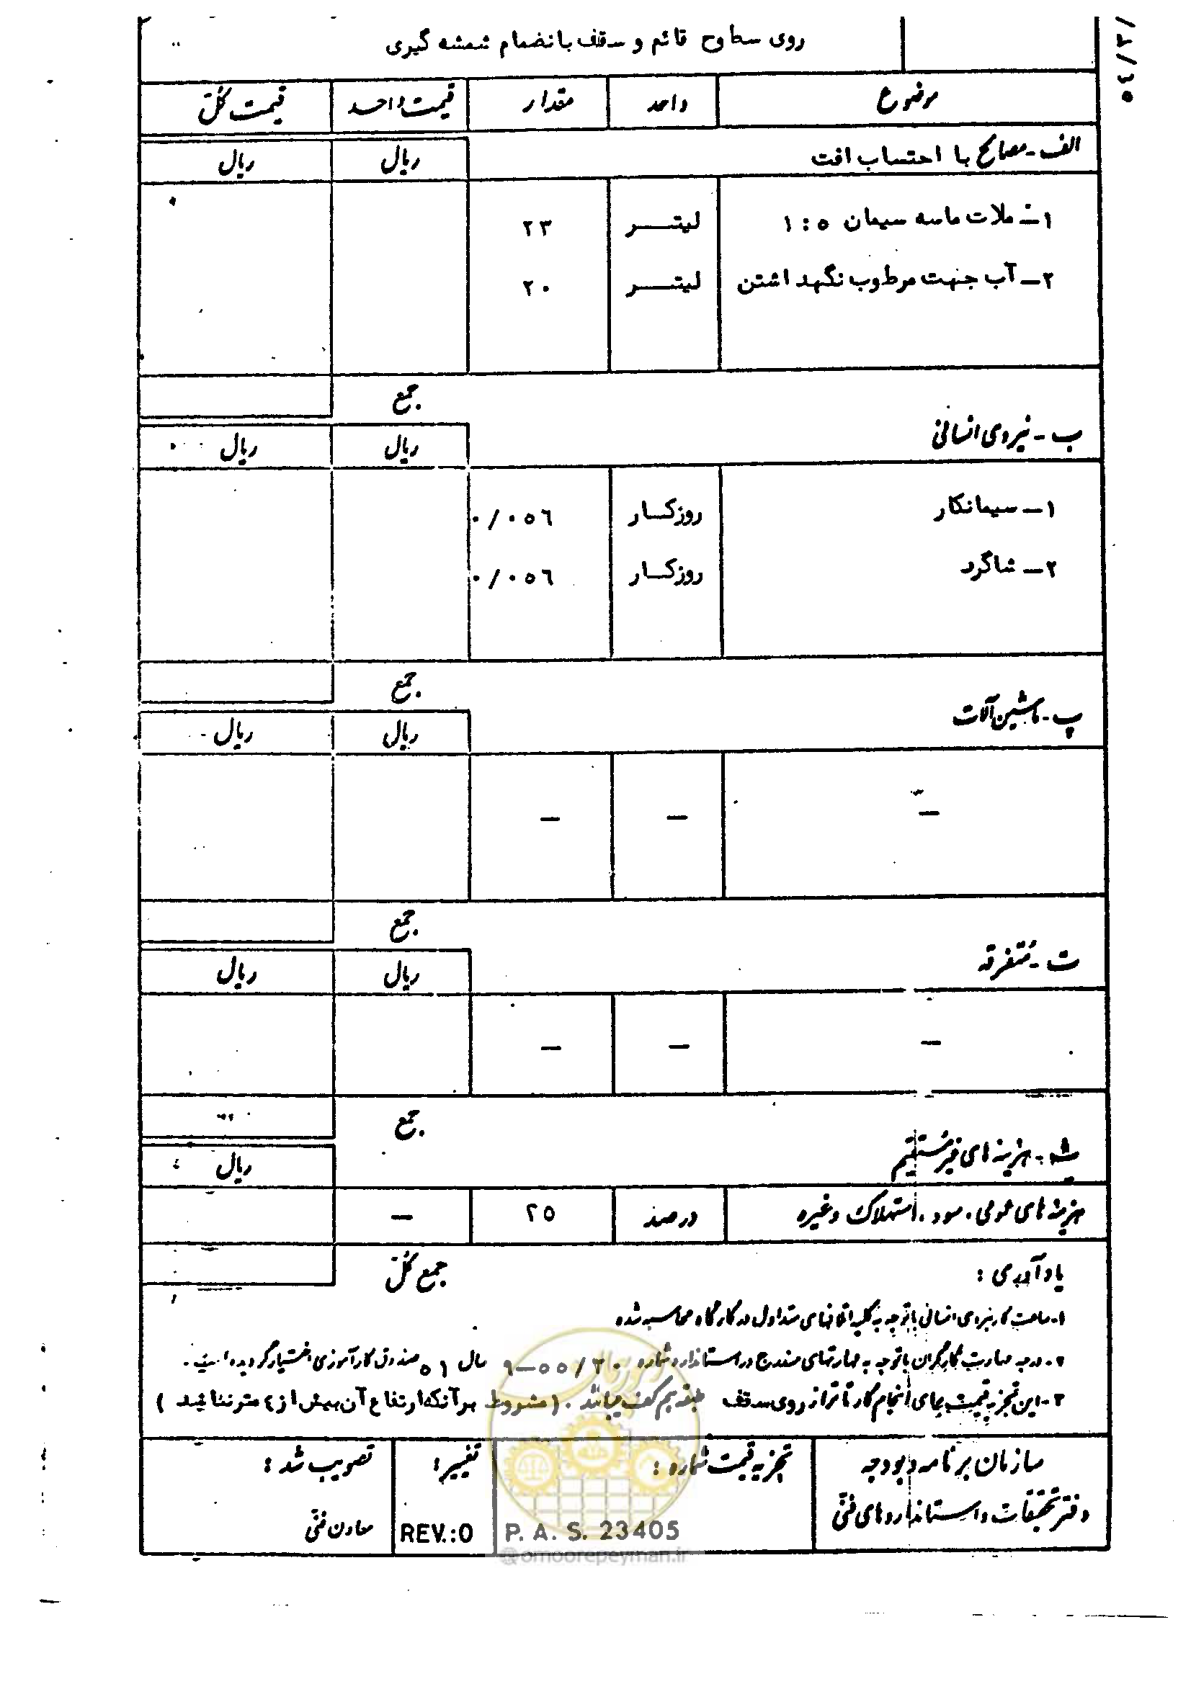 روی سطوح قائم و سقف بانضمام شمشه گیری
موضوع واحد مقدار قیمت واحد قیمت کل
الف - مصالح با احتساب افت ریال ریال
۱ـ ملات ماسه سیمان ۵ : ۱ لیتر ۲۳
۲ـ آب جهت مرطوب نگهداشتن لیتر ۲۰
جمع
ب - نیروی انسانی ریال ریال
۱ـ سیمانکار روزکار ۰/۰۵۶
۲ـ شاگرد روزکار ۰/۰۵۶
جمع
پ - ماشین آلات ریال ریال
— — —
جمع
ت - متفرقه ریال ریال
— — —
جمع
ث - هزینه های غیر مستقیم ریال
هزینه های عمومی ، سود ، استهلاک و غیره درصد ۲۵ —
جمع کل
یادآوری :
۱- ساعت کار نیروی انسانی با توجه به کلیه اتلافهای متداول در کارگاه محاسبه شده
۲- درجه مهارت کارگران با توجه به مهارتهای مندرج در استاندارد شماره ۳۰/۵۵-۹ سال ۵۱ صندوق کارآموزی اختیار گردیده است.
۳- این تجزیه قیمت بجای انجام کار تا تراز روی سقف طبقه هم کف میباشد . (مشروط بر آنکه ارتفاع آن بیش از ٤ متر ننماید )
سازمان برنامه و بودجه تجزیه قیمت شماره : تغییر : تصویب شد :
دفتر تحقیقات و استانداردهای فنی P. A. S. 23405 REV.:0 معاون فنی
@omoorepeyman.ir